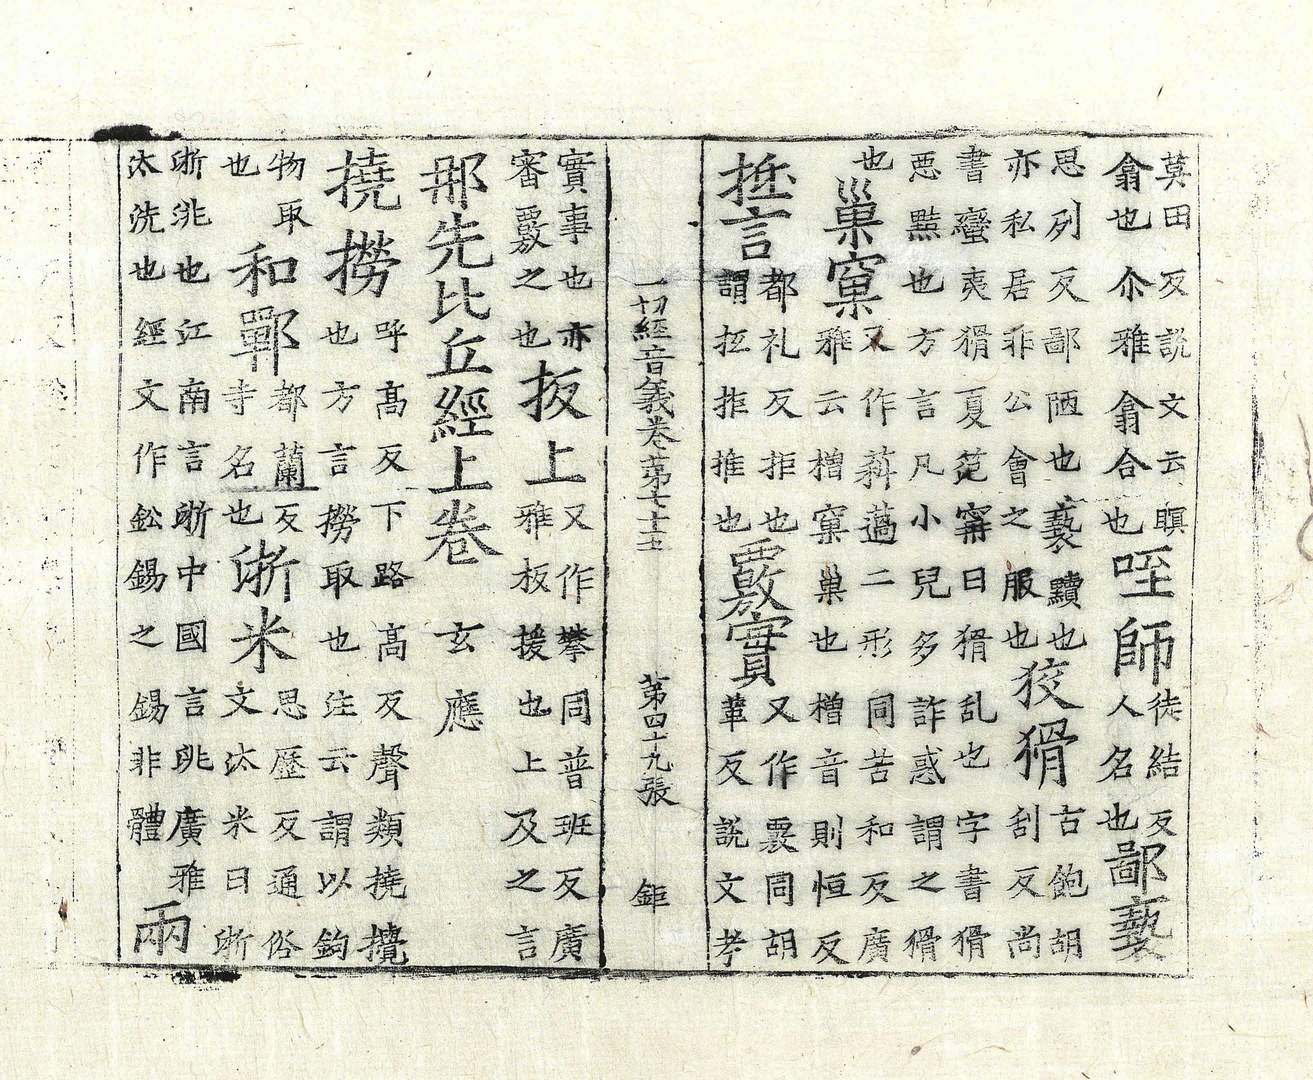 莫田反説文云瞑
翕也尒雅翕合也
咥師
徒結反
人名也
鄙褻
思列反鄙陋也褻黷也
亦私居非公會之服也
狡猾
古飽胡
刮反尚
書蠻夷猾夏范甯曰猾乱也字書猾
惡黠也方言凡小兒多詐惑謂之猾
也
巢窠
又作薖二形同苦和反廣
雅云橧窠巢也橧音則恒反
抵言
都礼反拒也
謂抂拒推也
覈實
又作覈同胡
革反説文考
一切經音義卷第七十五 第四十九張 鉅
實事也亦
審覈之也
扳上
又作攀同普班反廣
雅扳援也上及之言
那先比丘經上卷 玄應
撓撈
呼高反下路高反聲類撓攪
也方言撈取也注云謂以鉤
物取
也
和鄲
都蘭反
寺名也
淅米
思歷反通俗
文汰米曰淅
淅洮也江南言淅中國言洮廣雅
汰洗也經文作鈆錫之錫非體
兩